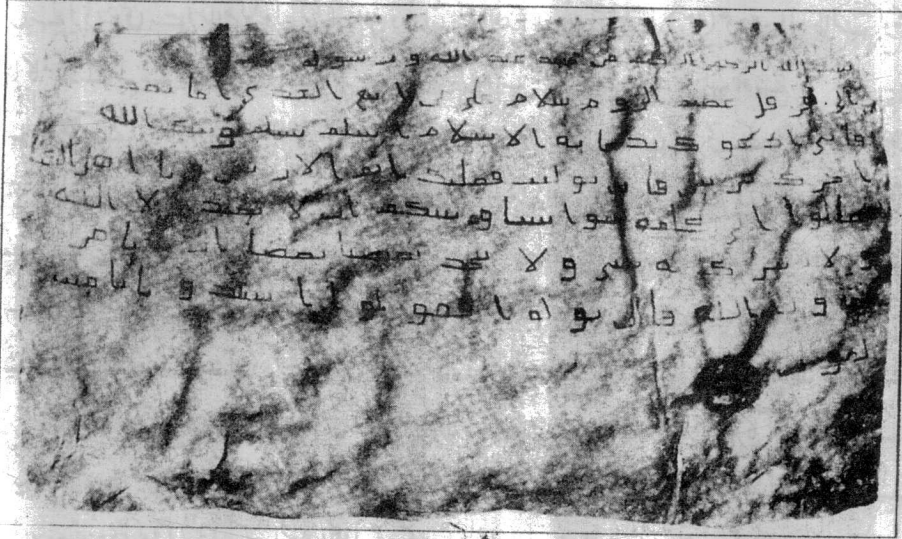 بسم الله الرحمن الرحيم من محمد عبد الله ورسوله
الى هرقل عظيم الروم سلام على من اتبع الهدى اما بعد
فانى ادعوك بدعاية الاسلام اسلم تسلم يوتك الله
اجرك مرتين فان توليت فعليك اثم الاريسيين ويا اهل الكتاب
تعالوا الى كلمة سوا بيننا وبينكم ان لا نعبد الا الله
ولا نشرك به شيا ولا يتخذ بعضنا بعضا اربابا من
دون الله فان تولوا فقولوا اشهدوا بانا مسـ
لمون